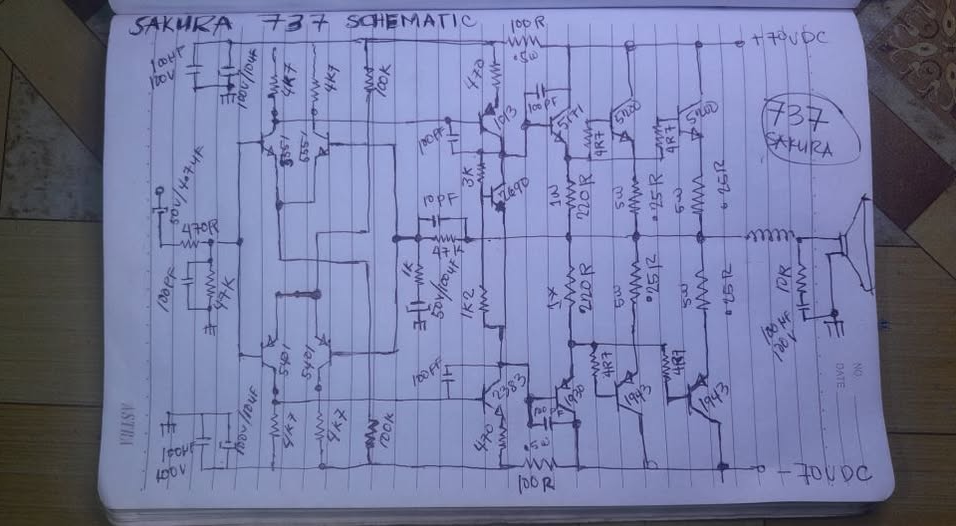 SAKURA 737 SCHEMATIC
100R
.5W
+70VDC
737
SAKURA
100V
100V/10uF
4K7
4K7
100K
470
1013
5551
5551
100PF
3K
2690
5171
4R7
5200
4R7
5200
1W
220R
5W
.25R
5W
.25R
50V/
470R
47K
10PF
47K
1K
1K2
220R
5W
.25R
5W
.25R
10R
5401
5401
100PF
2383
1930
4R7
1943
4R7
1943
100V
100V/10uF
4K7
4K7
100K
470
.5
100R
-70VDC
ASTRA
NO.
DATE